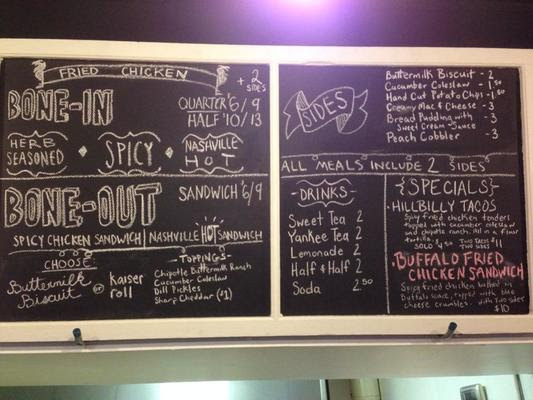 FRIED CHICKEN
+ 2
SIDES
BONE-IN
QUARTER 6/9
HALF 10/13
HERB
SEASONED
SPICY
NASHVILLE
HOT
BONE-OUT
SANDWICH 6/9
SPICY CHICKEN SANDWICH
NASHVILLE HOT SANDWICH
CHOOSE
Buttermilk
Biscuit
or
kaiser
roll
-TOPPINGS-
Chipotle Buttermilk Ranch
Cucumber Coleslaw
Dill Pickles
Sharp Cheddar ($1)
SIDES
Buttermilk Biscuit - 2
Cucumber Coleslaw - 1.50
Hand Cut Potato Chips - 1.50
Creamy Mac & Cheese - 3
Bread Pudding with
Sweet Cream Sauce - 3
Peach Cobbler - 3
ALL MEALS INCLUDE 2 SIDES
-DRINKS-
Sweet Tea 2
Yankee Tea 2
Lemonade 2
Half & Half 2
Soda 2.50
SPECIALS
HILLBILLY TACOS
Spicy fried chicken tenders
topped with cucumber coleslaw
and chipotle ranch. All in a flour
tortilla.
SOLO $4.50 TWO TACOS $11
TWO SIDES
BUFFALO FRIED
CHICKEN SANDWICH
Spicy fried chicken bathed in
Buffalo sauce, topped with blue
cheese crumbles. with two sides
$10